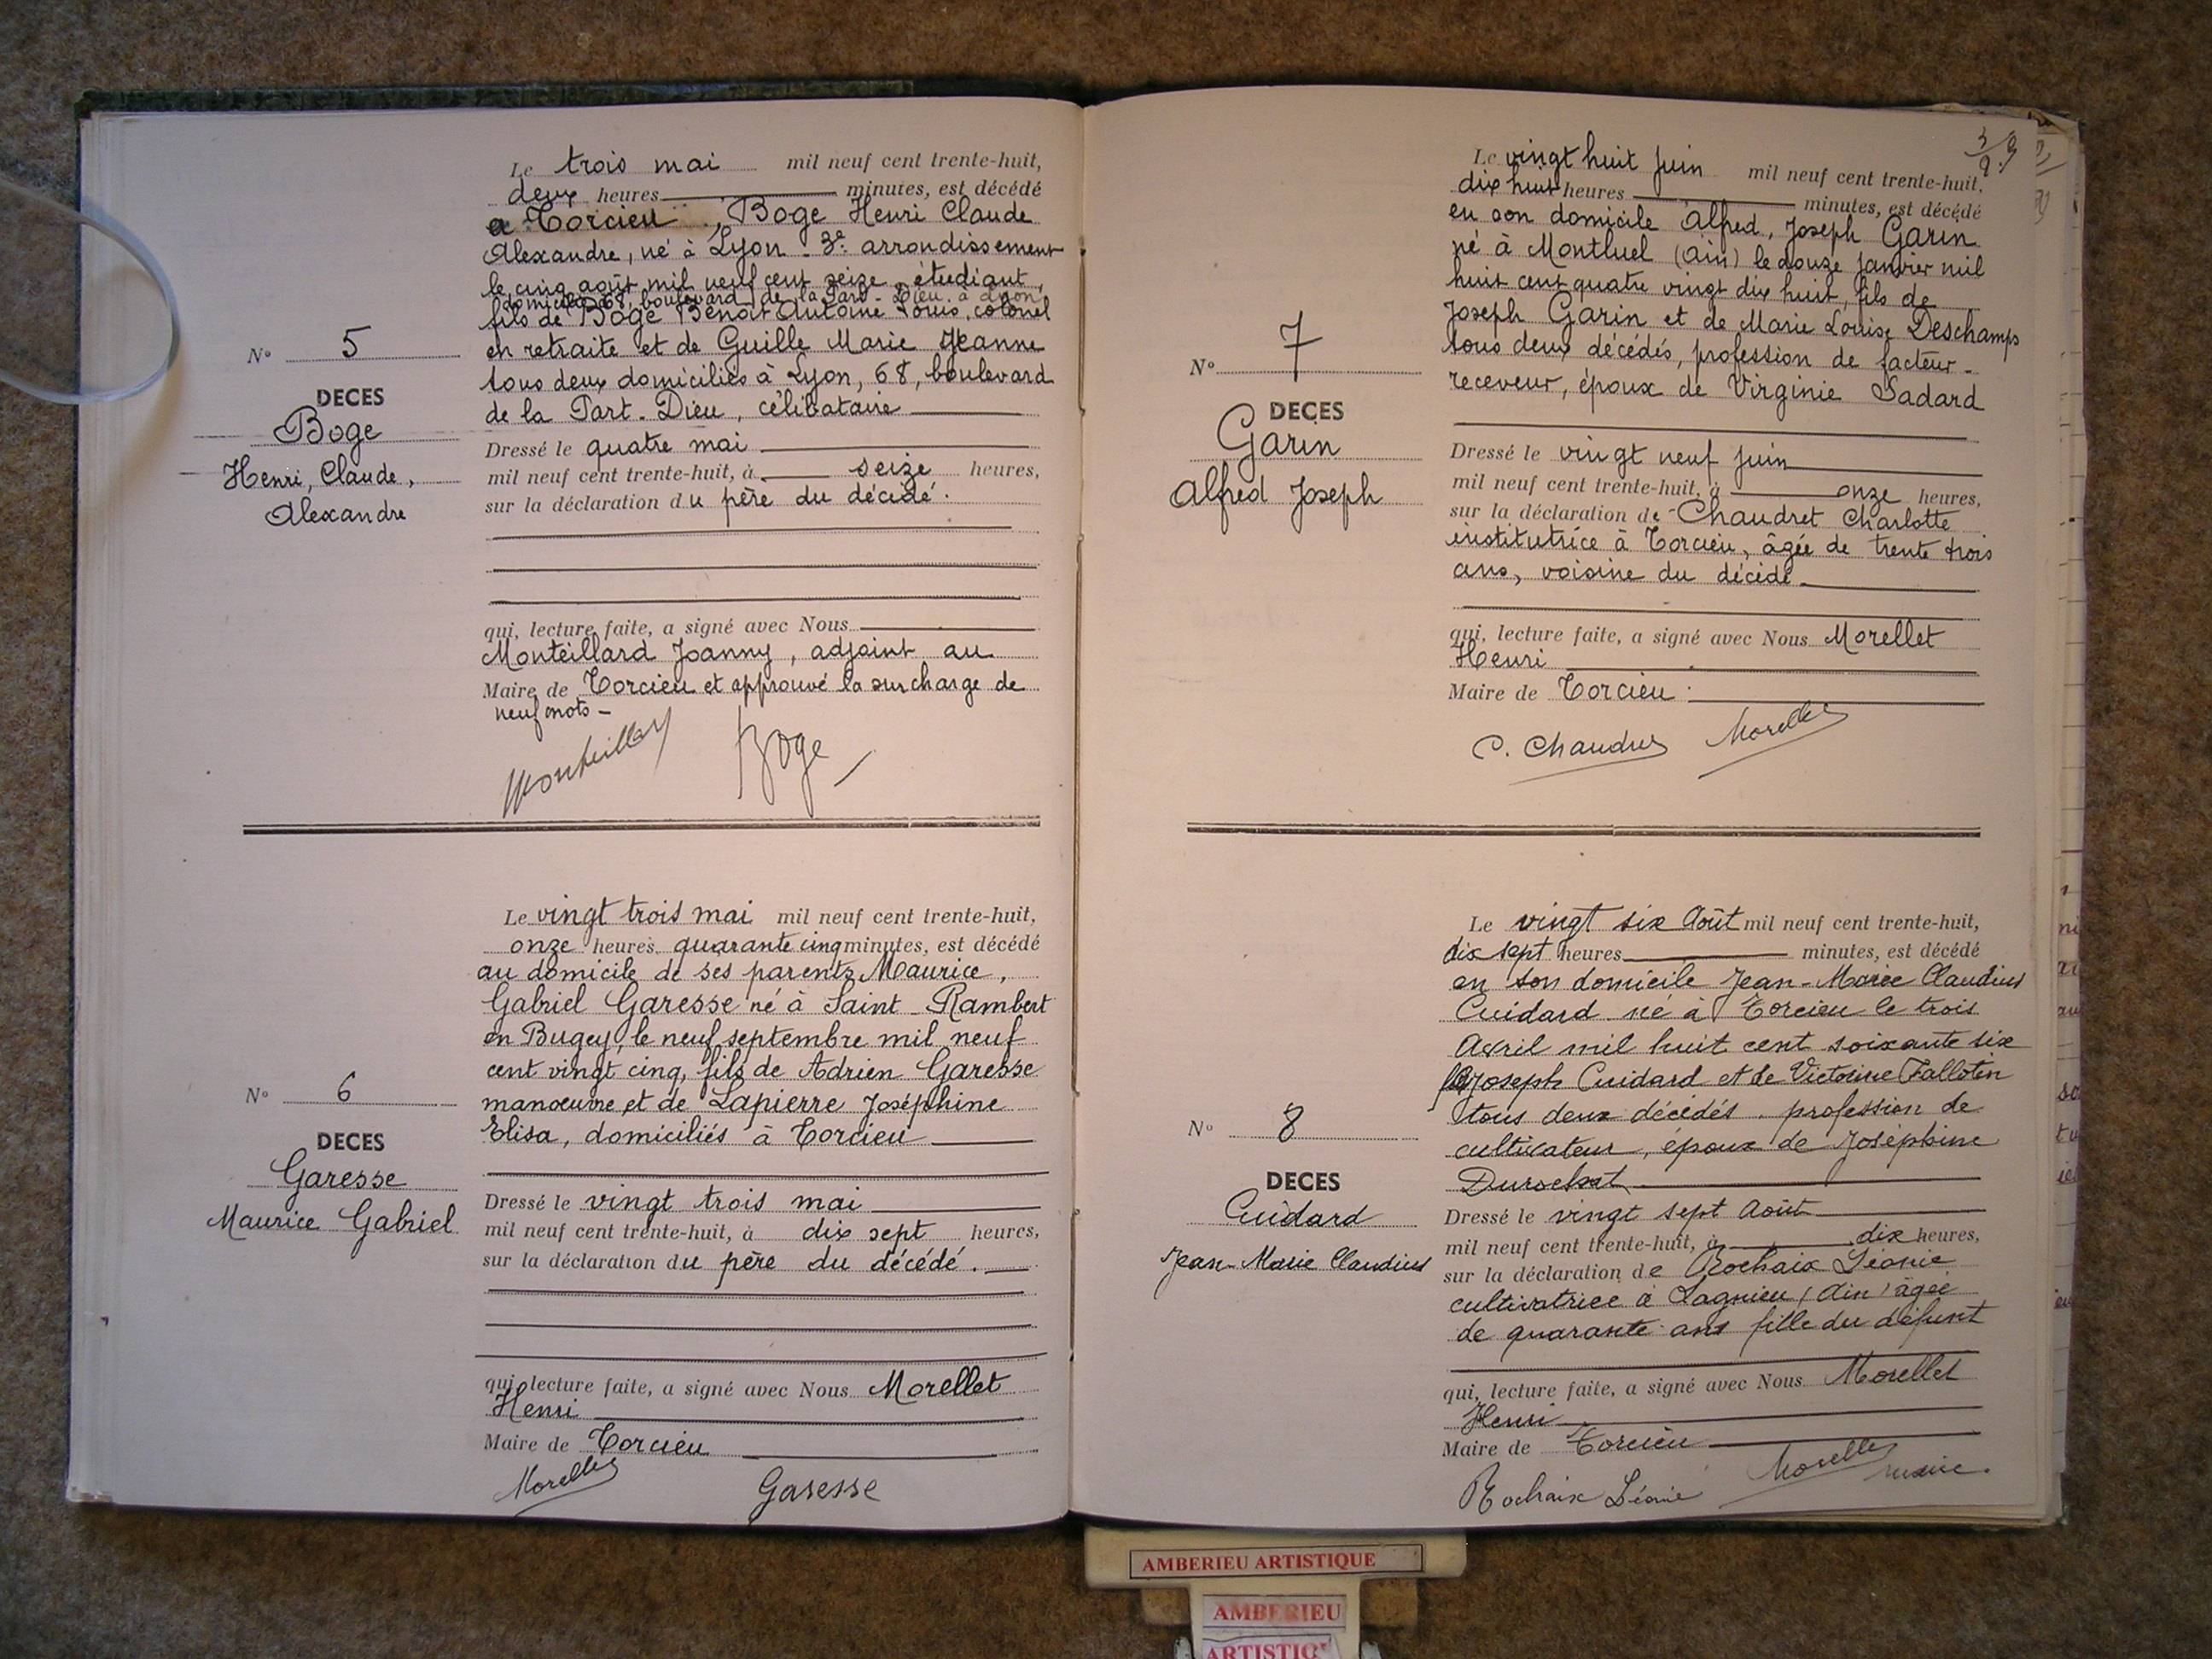 Le trois mai mil neuf cent trente-huit,
deux heures minutes, est décédé
a Torcieu, Boge Henri Claude
Alexandre, né à Lyon - 3e arrondissement
le cinq août mil neuf cent seize, étudiant,
domicilié 68, boulevard de la Part-Dieu à Lyon,
fils de Boge Benoit Antoine Louis, colonel
en retraite et de Guille Marie Jeanne
tous deux domiciliés à Lyon, 68, boulevard
de la Part-Dieu, célibataire
No 5
DECES
Boge
Henri, Claude,
Alexandre
Dressé le quatre mai
mil neuf cent trente-huit, à seize heures,
sur la déclaration du père du décédé.
qui, lecture faite, a signé avec Nous
Monteillard Joanny, adjoint au
Maire de Torcieu et approuvé la surcharge de
neuf mots -
Monteillard Boge
Le vingt trois mai mil neuf cent trente-huit,
onze heures quarante cinq minutes, est décédé
au domicile de ses parents Maurice,
Gabriel Garesse né à Saint-Rambert
en Bugey, le neuf septembre mil neuf
cent vingt cinq, fils de Adrien Garesse
manœuvre et de Lapierre Joséphine
Elisa, domiciliés à Torcieu
No 6
DECES
Garesse
Maurice Gabriel
Dressé le vingt trois mai
mil neuf cent trente-huit, à dix sept heures,
sur la déclaration du père du décédé.
qui, lecture faite, a signé avec Nous Morellet
Henri
Maire de Torcieu
Morellet Garesse
Le vingt huit juin mil neuf cent trente-huit,
dix huit heures minutes, est décédé
en son domicile Alfred, Joseph Garin
né à Montluel (Ain) le douze janvier mil
huit cent quatre vingt dix huit, fils de
Joseph Garin et de Marie Louise Deschamps
tous deux décédés, profession de facteur-
receveur, époux de Virginie Sadard
No 7
DECES
Garin
Alfred Joseph
Dressé le vingt neuf juin
mil neuf cent trente-huit, à onze heures,
sur la déclaration de Chaudret Charlotte
institutrice à Torcieu, âgée de trente trois
ans, voisine du décédé
qui, lecture faite, a signé avec Nous Morellet
Henri
Maire de Torcieu
C. Chaudret Morellet
Le vingt six Août mil neuf cent trente-huit,
dix sept heures minutes, est décédé
en son domicile Jean-Marie Claudius
Cuidard né à Torcieu le trois
Avril mil huit cent soixante six
Joseph Cuidard et de Victorine Fallotin
tous deux décédés. profession de
cultivateur, époux de Joséphine
Durochat
No 8
DECES
Cuidard
Jean-Marie Claudius
Dressé le vingt sept Août
mil neuf cent trente-huit, à dix heures,
sur la déclaration de Rochaix Léonie
cultivatrice à Lagnieu (Ain) âgée
de quarante ans fille du défunt
qui, lecture faite, a signé avec Nous Morellet
Henri
Maire de Torcieu
Rochaix Léonie Morellet maire.
AMBERIEU ARTISTIQUE
AMBERIEU